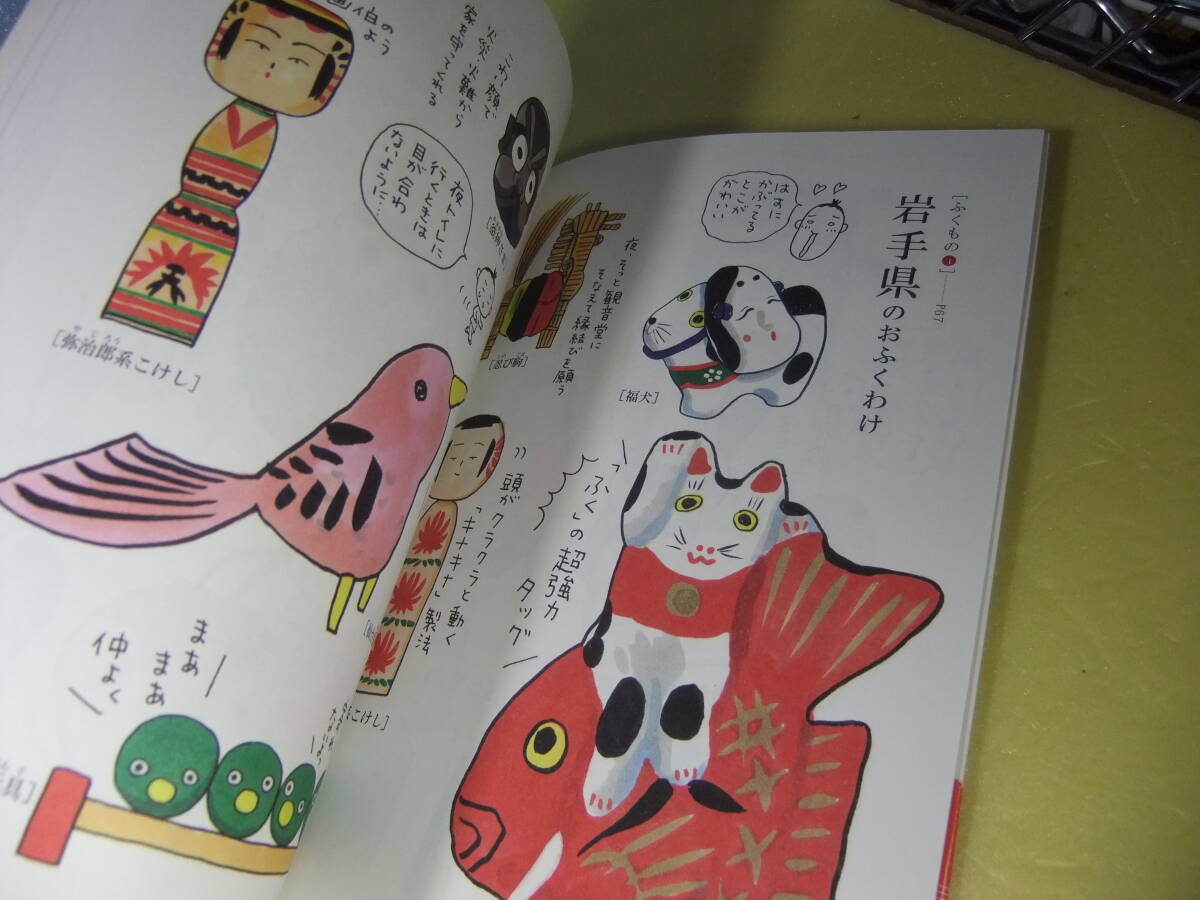 [ふくもの1]——P67
岩手県のおふくわけ
はすに
かぶってる
とこが
かわいい
[福犬]
夜、そっと観音堂に
そなえて縁結びを願う
[忍び駒]
しの ごま
「ふく」の超強力
タッグ
頭がクラクラと動く
「キナキナ」製法
こけし]
画伯の
よう
こわい顔で
火災、火難から
家を守ってくれる
夜トイレに
行くときは
目が合わ
ないように…
やじろう
[弥治郎系こけし]
まあ
まあ
仲よく